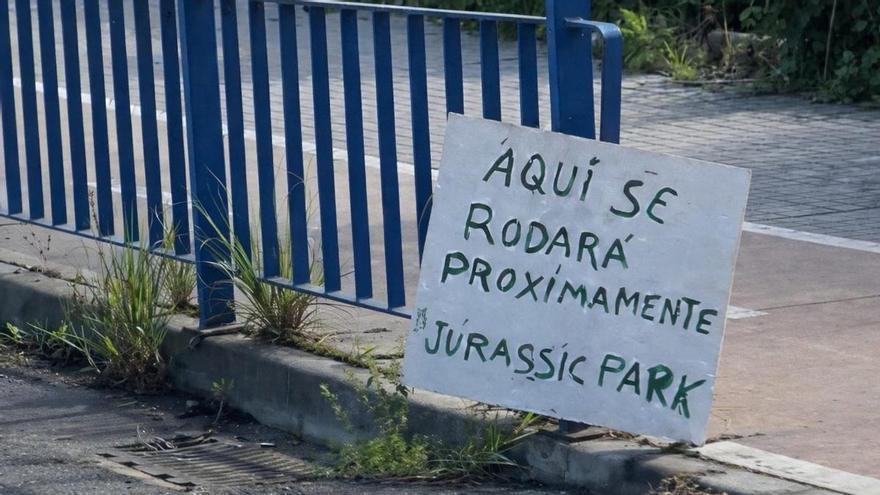 ÁQUÍ SE
RODARÁ
PROXÍMAMENTE
JÚRASSÍC PARK